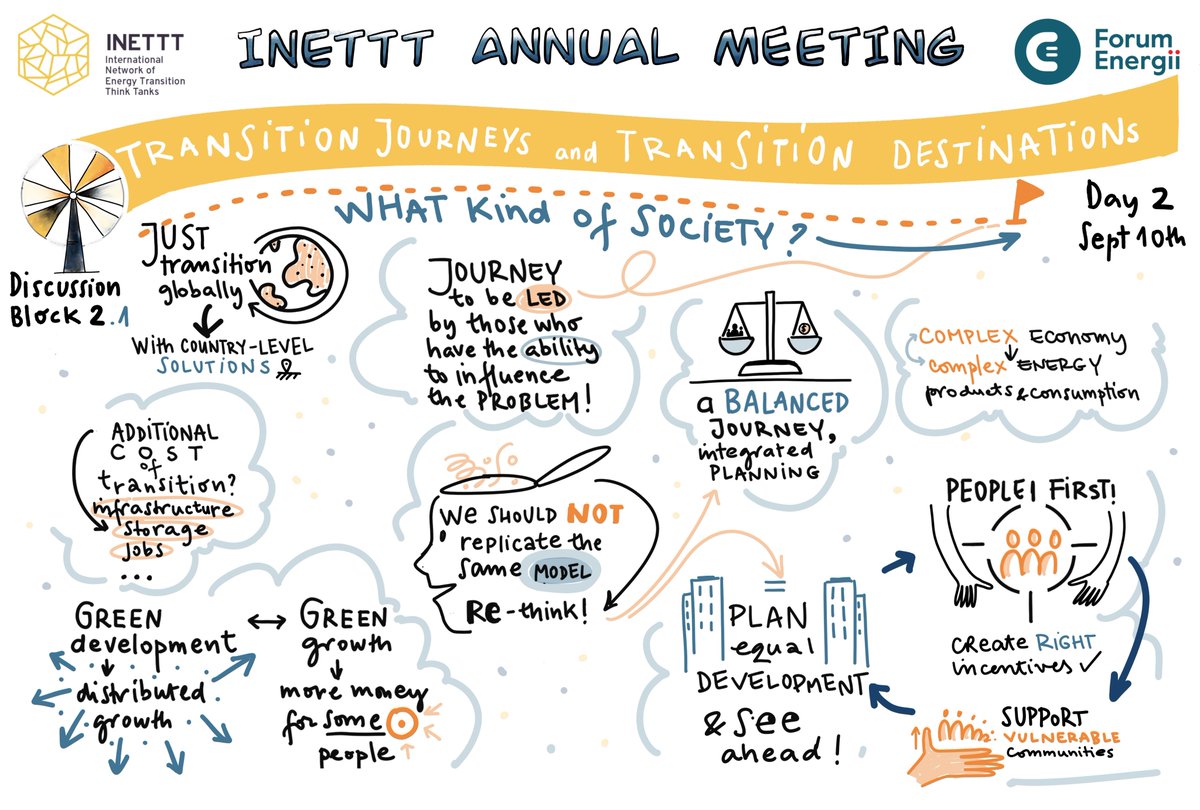 INETTT
International
Network of
Energy Transition
Think Tanks
INETTT ANNUAL MEETING
Forum
Energii
TRANSITION JOURNEYS and TRANSITION DESTINATIONS
WHAT Kind of SOCIETY?
Day 2
Sept 10th
Discussion
Block 2.1
JUST
transition
globally
With COUNTRY-LEVEL
SOLUTIONS
JOURNEY
to be LED
by those who
have the ability
to influence
the PROBLEM!
a BALANCED
JOURNEY,
integrated
PLANNING
COMPLEX Economy
complex ENERGY
products & consumption
ADDITIONAL
COST
of
transition?
infrastructure
storage
jobs
...
We SHOULD NOT
replicate the
same MODEL
Re-think!
PEOPLE FIRST!
CREATE RIGHT
incentives
SUPPORT
VULNERABLE
Communities
=
PLAN
equal
DEVELOPMENT
& See
ahead!
GREEN
development
distributed
growth
GREEN
growth
more money
for some
people